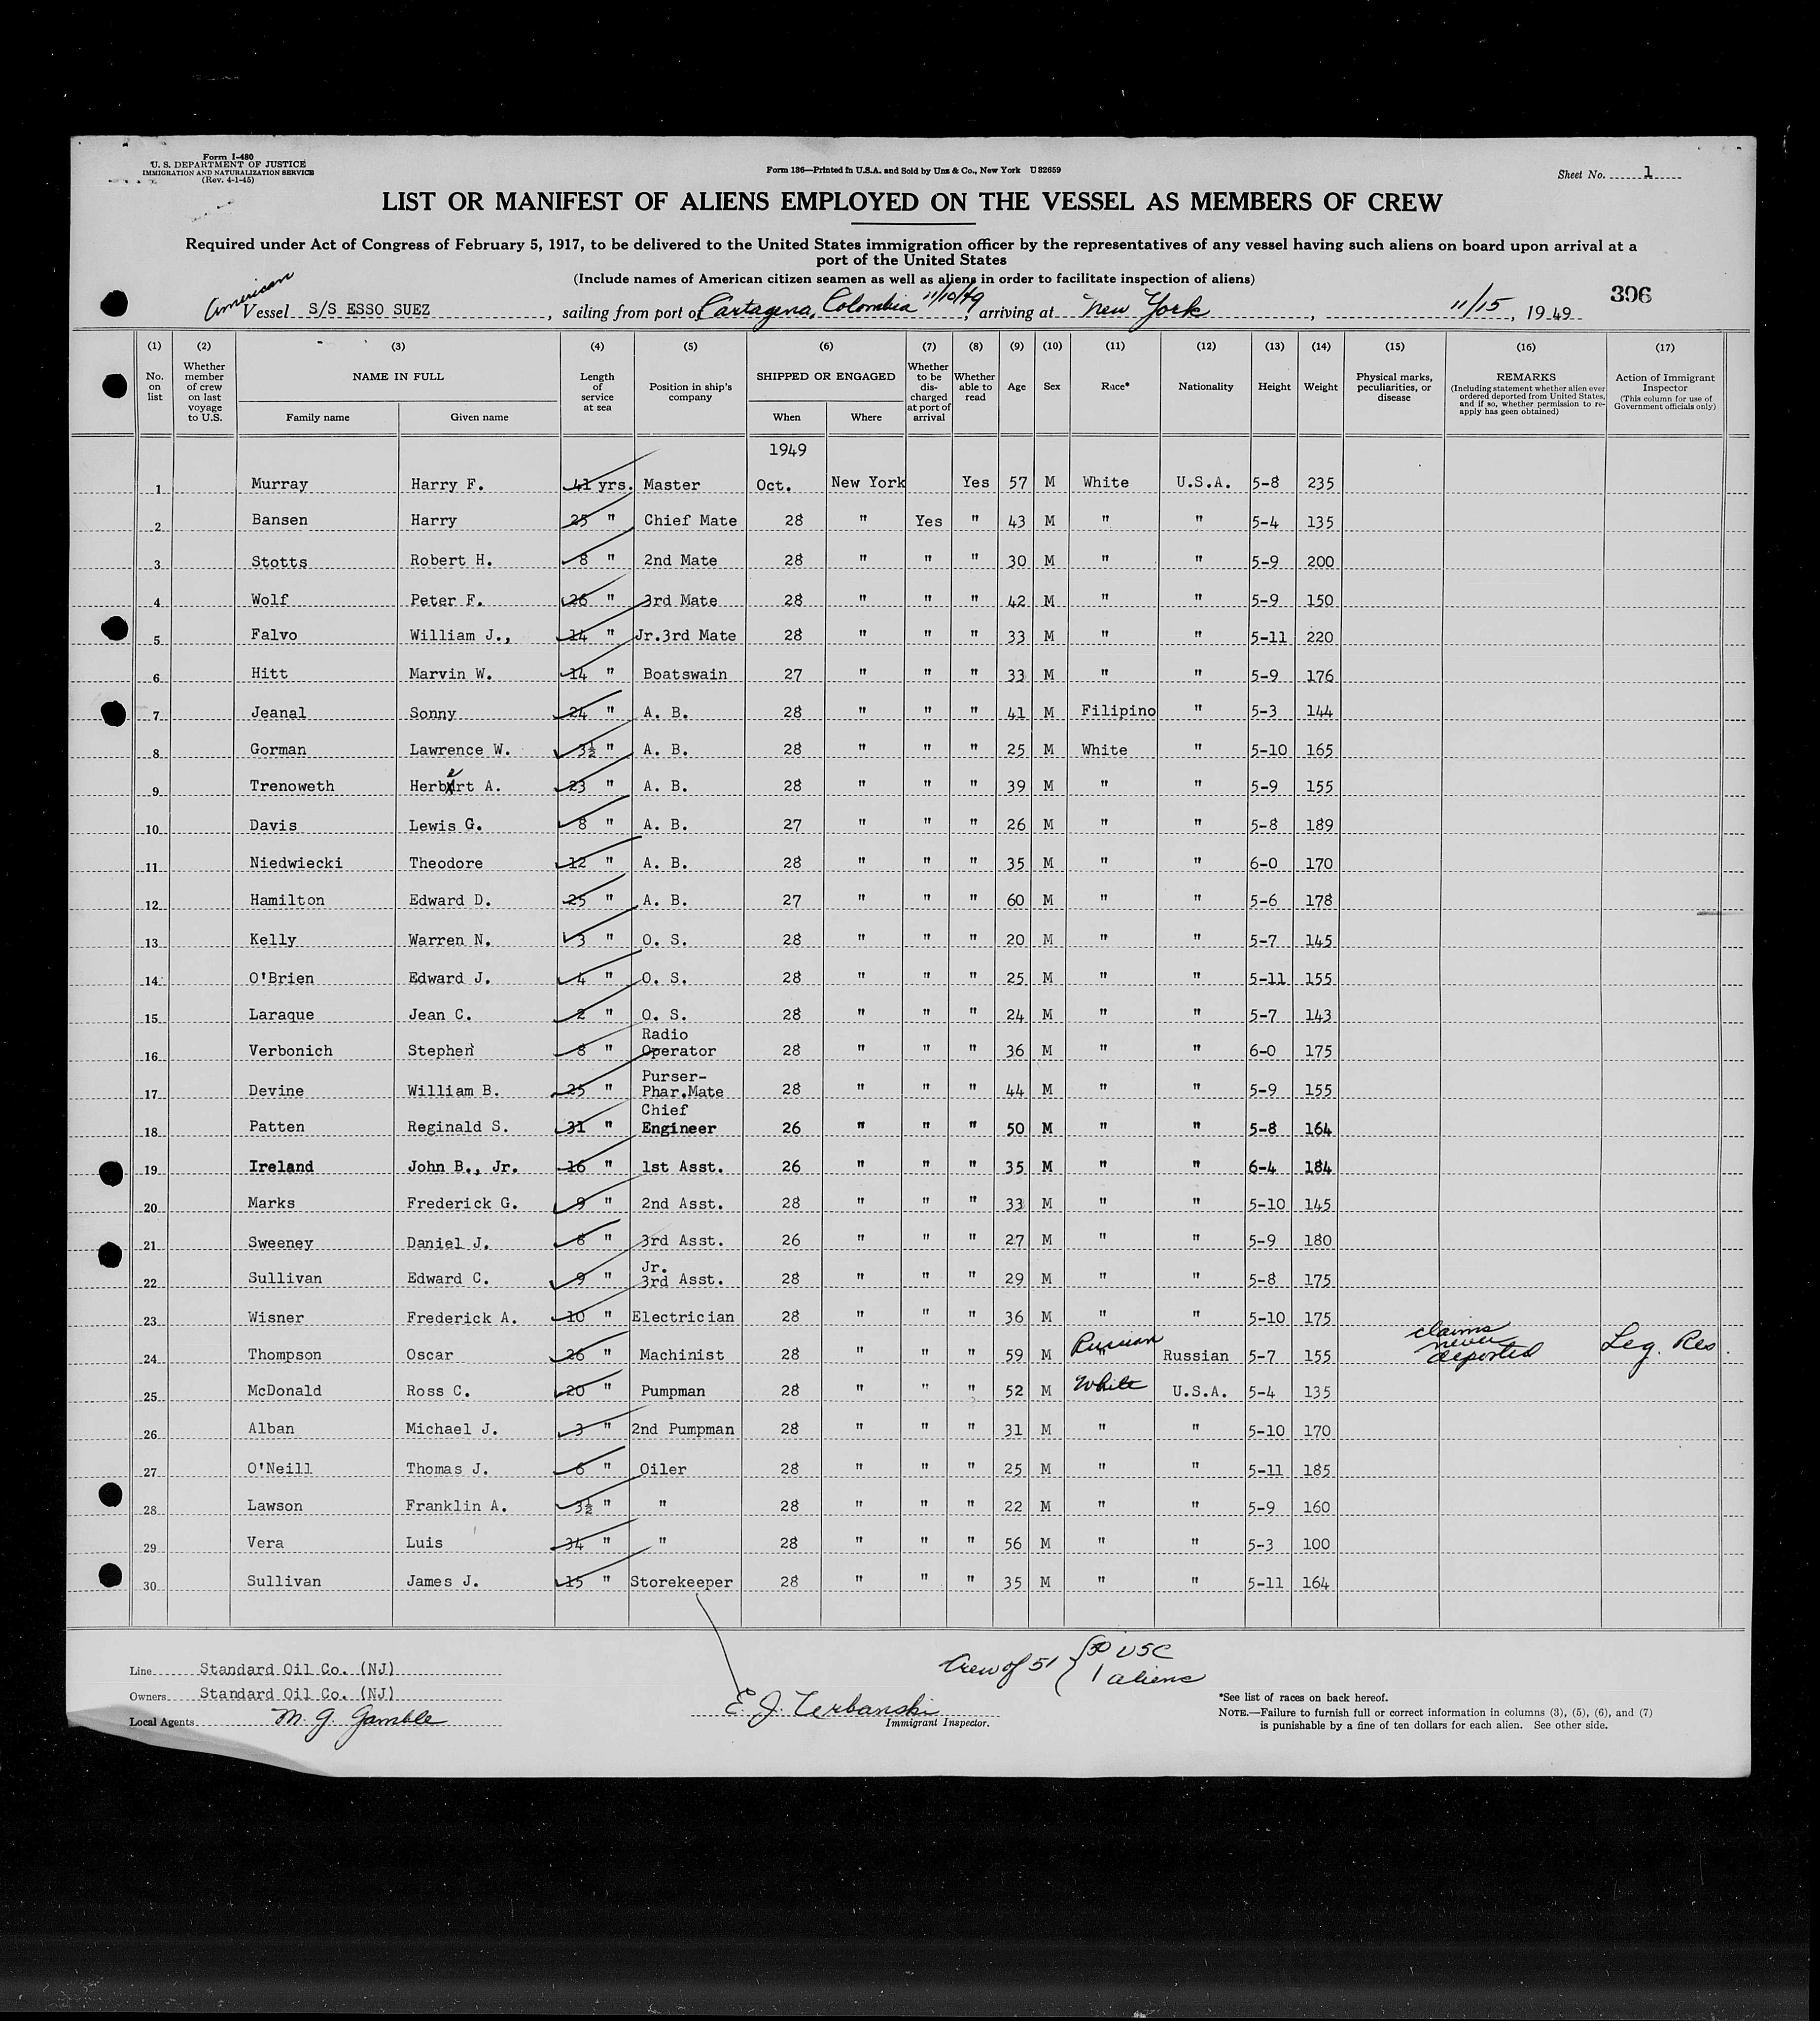 Form I-480
U. S. DEPARTMENT OF JUSTICE
IMMIGRATION AND NATURALIZATION SERVICE
(Rev. 4-1-45)
Form 136—Printed in U.S.A. and Sold by Unz & Co., New York U 32659
Sheet No. 1
LIST OR MANIFEST OF ALIENS EMPLOYED ON THE VESSEL AS MEMBERS OF CREW
Required under Act of Congress of February 5, 1917, to be delivered to the United States immigration officer by the representatives of any vessel having such aliens on board upon arrival at a
port of the United States
(Include names of American citizen seamen as well as aliens in order to facilitate inspection of aliens)
396
American
Vessel S/S ESSO SUEZ, sailing from port of Cartagena, Colombia 11/10/49, arriving at New York, 11/15, 1949
(1) (2) (3) (4) (5) (6) (7) (8) (9) (10) (11) (12) (13) (14) (15) (16) (17)
No. on list
Whether member of crew on last voyage to U.S.
NAME IN FULL
Family name Given name
Length of service at sea
Position in ship's company
SHIPPED OR ENGAGED
When Where
Whether to be discharged at port of arrival
Whether able to read
Age
Sex
Race*
Nationality
Height
Weight
Physical marks, peculiarities, or disease
REMARKS
(Including statement whether alien ever ordered deported from United States, and if so, whether permission to re-apply has geen obtained)
Action of Immigrant Inspector
(This column for use of Government officials only)
1949
1 Murray Harry F. 41 yrs. Master Oct. New York Yes 57 M White U.S.A. 5-8 235
2 Bansen Harry 25 " Chief Mate 28 " Yes " 43 M " " 5-4 135
3 Stotts Robert H. 8 " 2nd Mate 28 " " " 30 M " " 5-9 200
4 Wolf Peter F. 26 " 3rd Mate 28 " " " 42 M " " 5-9 150
5 Falvo William J., 14 " Jr.3rd Mate 28 " " " 33 M " " 5-11 220
6 Hitt Marvin W. 14 " Boatswain 27 " " " 33 M " " 5-9 176
7 Jeanal Sonny 24 " A. B. 28 " " " 41 M Filipino " 5-3 144
8 Gorman Lawrence W. 3½ " A. B. 28 " " " 25 M White " 5-10 165
9 Trenoweth Herbert A. 23 " A. B. 28 " " " 39 M " " 5-9 155
10 Davis Lewis G. 8 " A. B. 27 " " " 26 M " " 5-8 189
11 Niedwiecki Theodore 12 " A. B. 28 " " " 35 M " " 6-0 170
12 Hamilton Edward D. 25 " A. B. 27 " " " 60 M " " 5-6 178
13 Kelly Warren N. 3 " O. S. 28 " " " 20 M " " 5-7 145
14 O'Brien Edward J. 4 " O. S. 28 " " " 25 M " " 5-11 155
15 Laraque Jean C. 2 " O. S. 28 " " " 24 M " " 5-7 143
16 Verbonich Stephen 8 " Radio Operator 28 " " " 36 M " " 6-0 175
17 Devine William B. 25 " Purser-Phar.Mate 28 " " " 44 M " " 5-9 155
18 Patten Reginald S. 31 " Chief Engineer 26 " " " 50 M " " 5-8 164
19 Ireland John B., Jr. 16 " 1st Asst. 26 " " " 35 M " " 6-4 184
20 Marks Frederick G. 9 " 2nd Asst. 28 " " " 33 M " " 5-10 145
21 Sweeney Daniel J. 8 " 3rd Asst. 26 " " " 27 M " " 5-9 180
22 Sullivan Edward C. 9 " Jr. 3rd Asst. 28 " " " 29 M " " 5-8 175
23 Wisner Frederick A. 10 " Electrician 28 " " " 36 M " " 5-10 175
24 Thompson Oscar 26 " Machinist 28 " " " 59 M Russian Russian 5-7 155 claims never deported Leg. Res.
25 McDonald Ross C. 20 " Pumpman 28 " " " 52 M White U.S.A. 5-4 135
26 Alban Michael J. 3 " 2nd Pumpman 28 " " " 31 M " " 5-10 170
27 O'Neill Thomas J. 6 " Oiler 28 " " " 25 M " " 5-11 185
28 Lawson Franklin A. 3½ " " 28 " " " 22 M " " 5-9 160
29 Vera Luis 34 " " 28 " " " 56 M " " 5-3 100
30 Sullivan James J. 15 " Storekeeper 28 " " " 35 M " " 5-11 164
Crew of 51 { 50 USC
1 aliens
Line Standard Oil Co. (NJ)
Owners Standard Oil Co. (NJ)
Local Agents M. J. Gamble
E. J. Terbanski
Immigrant Inspector.
*See list of races on back hereof.
NOTE.—Failure to furnish full or correct information in columns (3), (5), (6), and (7)
is punishable by a fine of ten dollars for each alien. See other side.